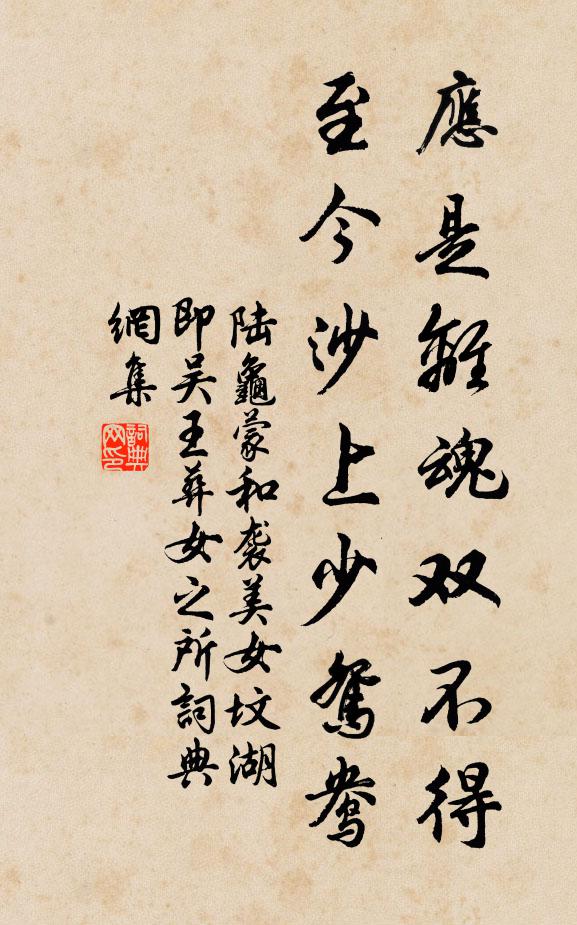 應是離魂双不得
至今沙上少鴛鴦
陆龜蒙和袭美女坟湖
即吴王葬女之所詞典
網集
詞典
网印